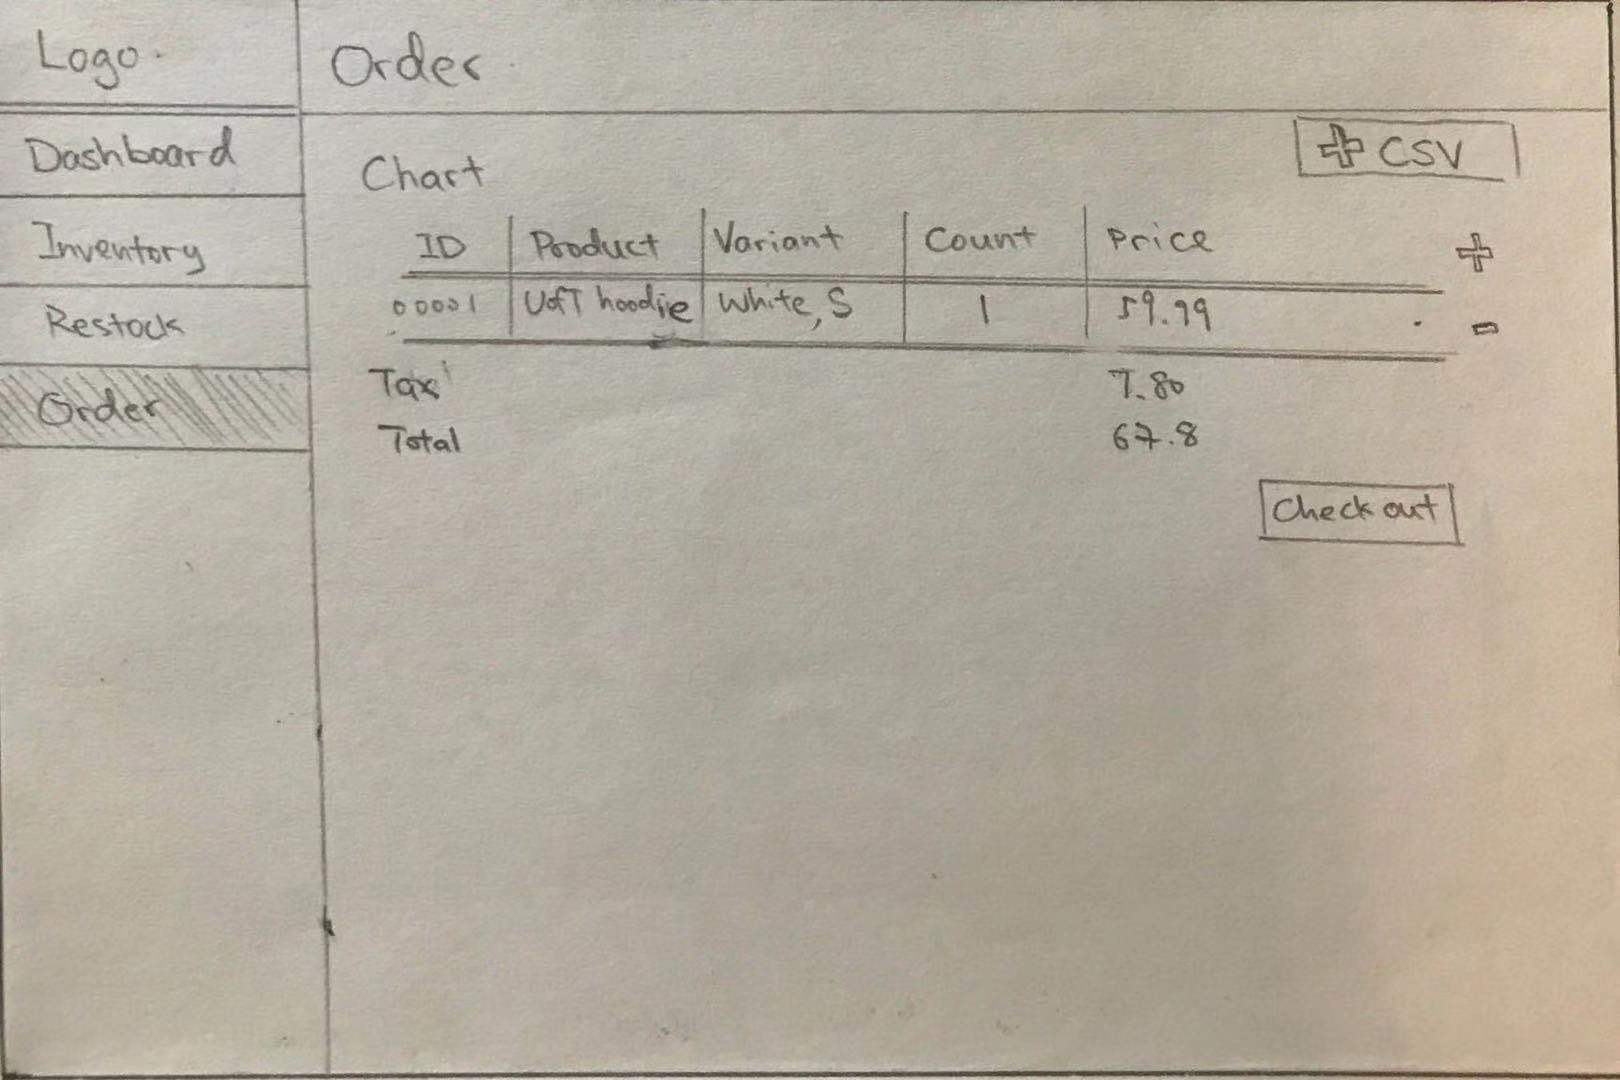 Logo
Order
Dashboard
Inventory
Restock
Order
Chart
+ CSV
ID Product Variant Count Price +
00001 UofT hoodie White, S 1 59.99 -
Tax 7.80
Total 67.8
Check out